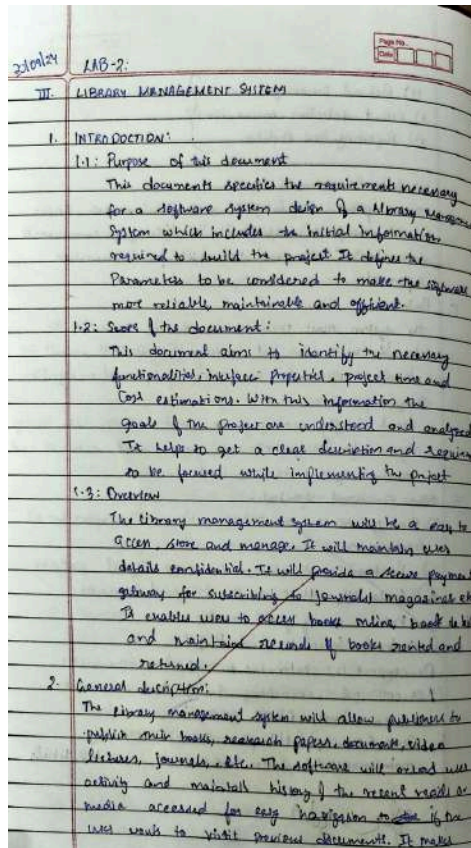 Page No.
Date
30/09/24 LAB-2:
III. LIBRARY MANAGEMENT SYSTEM
1. INTRODUCTION:
1.1: Purpose of this document
This documents specifies the requirements necessary
for a software system design of a Library Manageme
System which includes the initial information
required to build the project. It defines the
Parameters to be considered to make the software
more reliable, maintainable and efficient.
1.2: Scope of the document:
This document aims to identify the necessary
functionalities, interface properties, project time and
Cost estimations. With this information the
goals of the project are understood and analyzed
It helps to get a clear description and require
to be focused while implementing the project
1.3: Overview
The library management system will be a easy to
access, store and manage. It will maintain user
details confidential. It will provide a secure payment
gateway for subscribing to journals magazines etc
It enables user to access books online, book
and maintain records of books rented and
returned.
2. General description:
The library management system will allow publishers to
publish their books, research papers, documents, video
lectures, journals, etc. The software will user
activity and maintain history of the recent reads or
media accessed for easy navigation to if the
user wants to visit previous documents. It makes